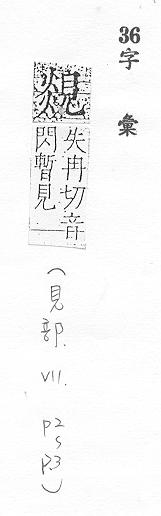 36
字彙
覢
失冉切音
閃暫見
（見部. VII. P2～P3）